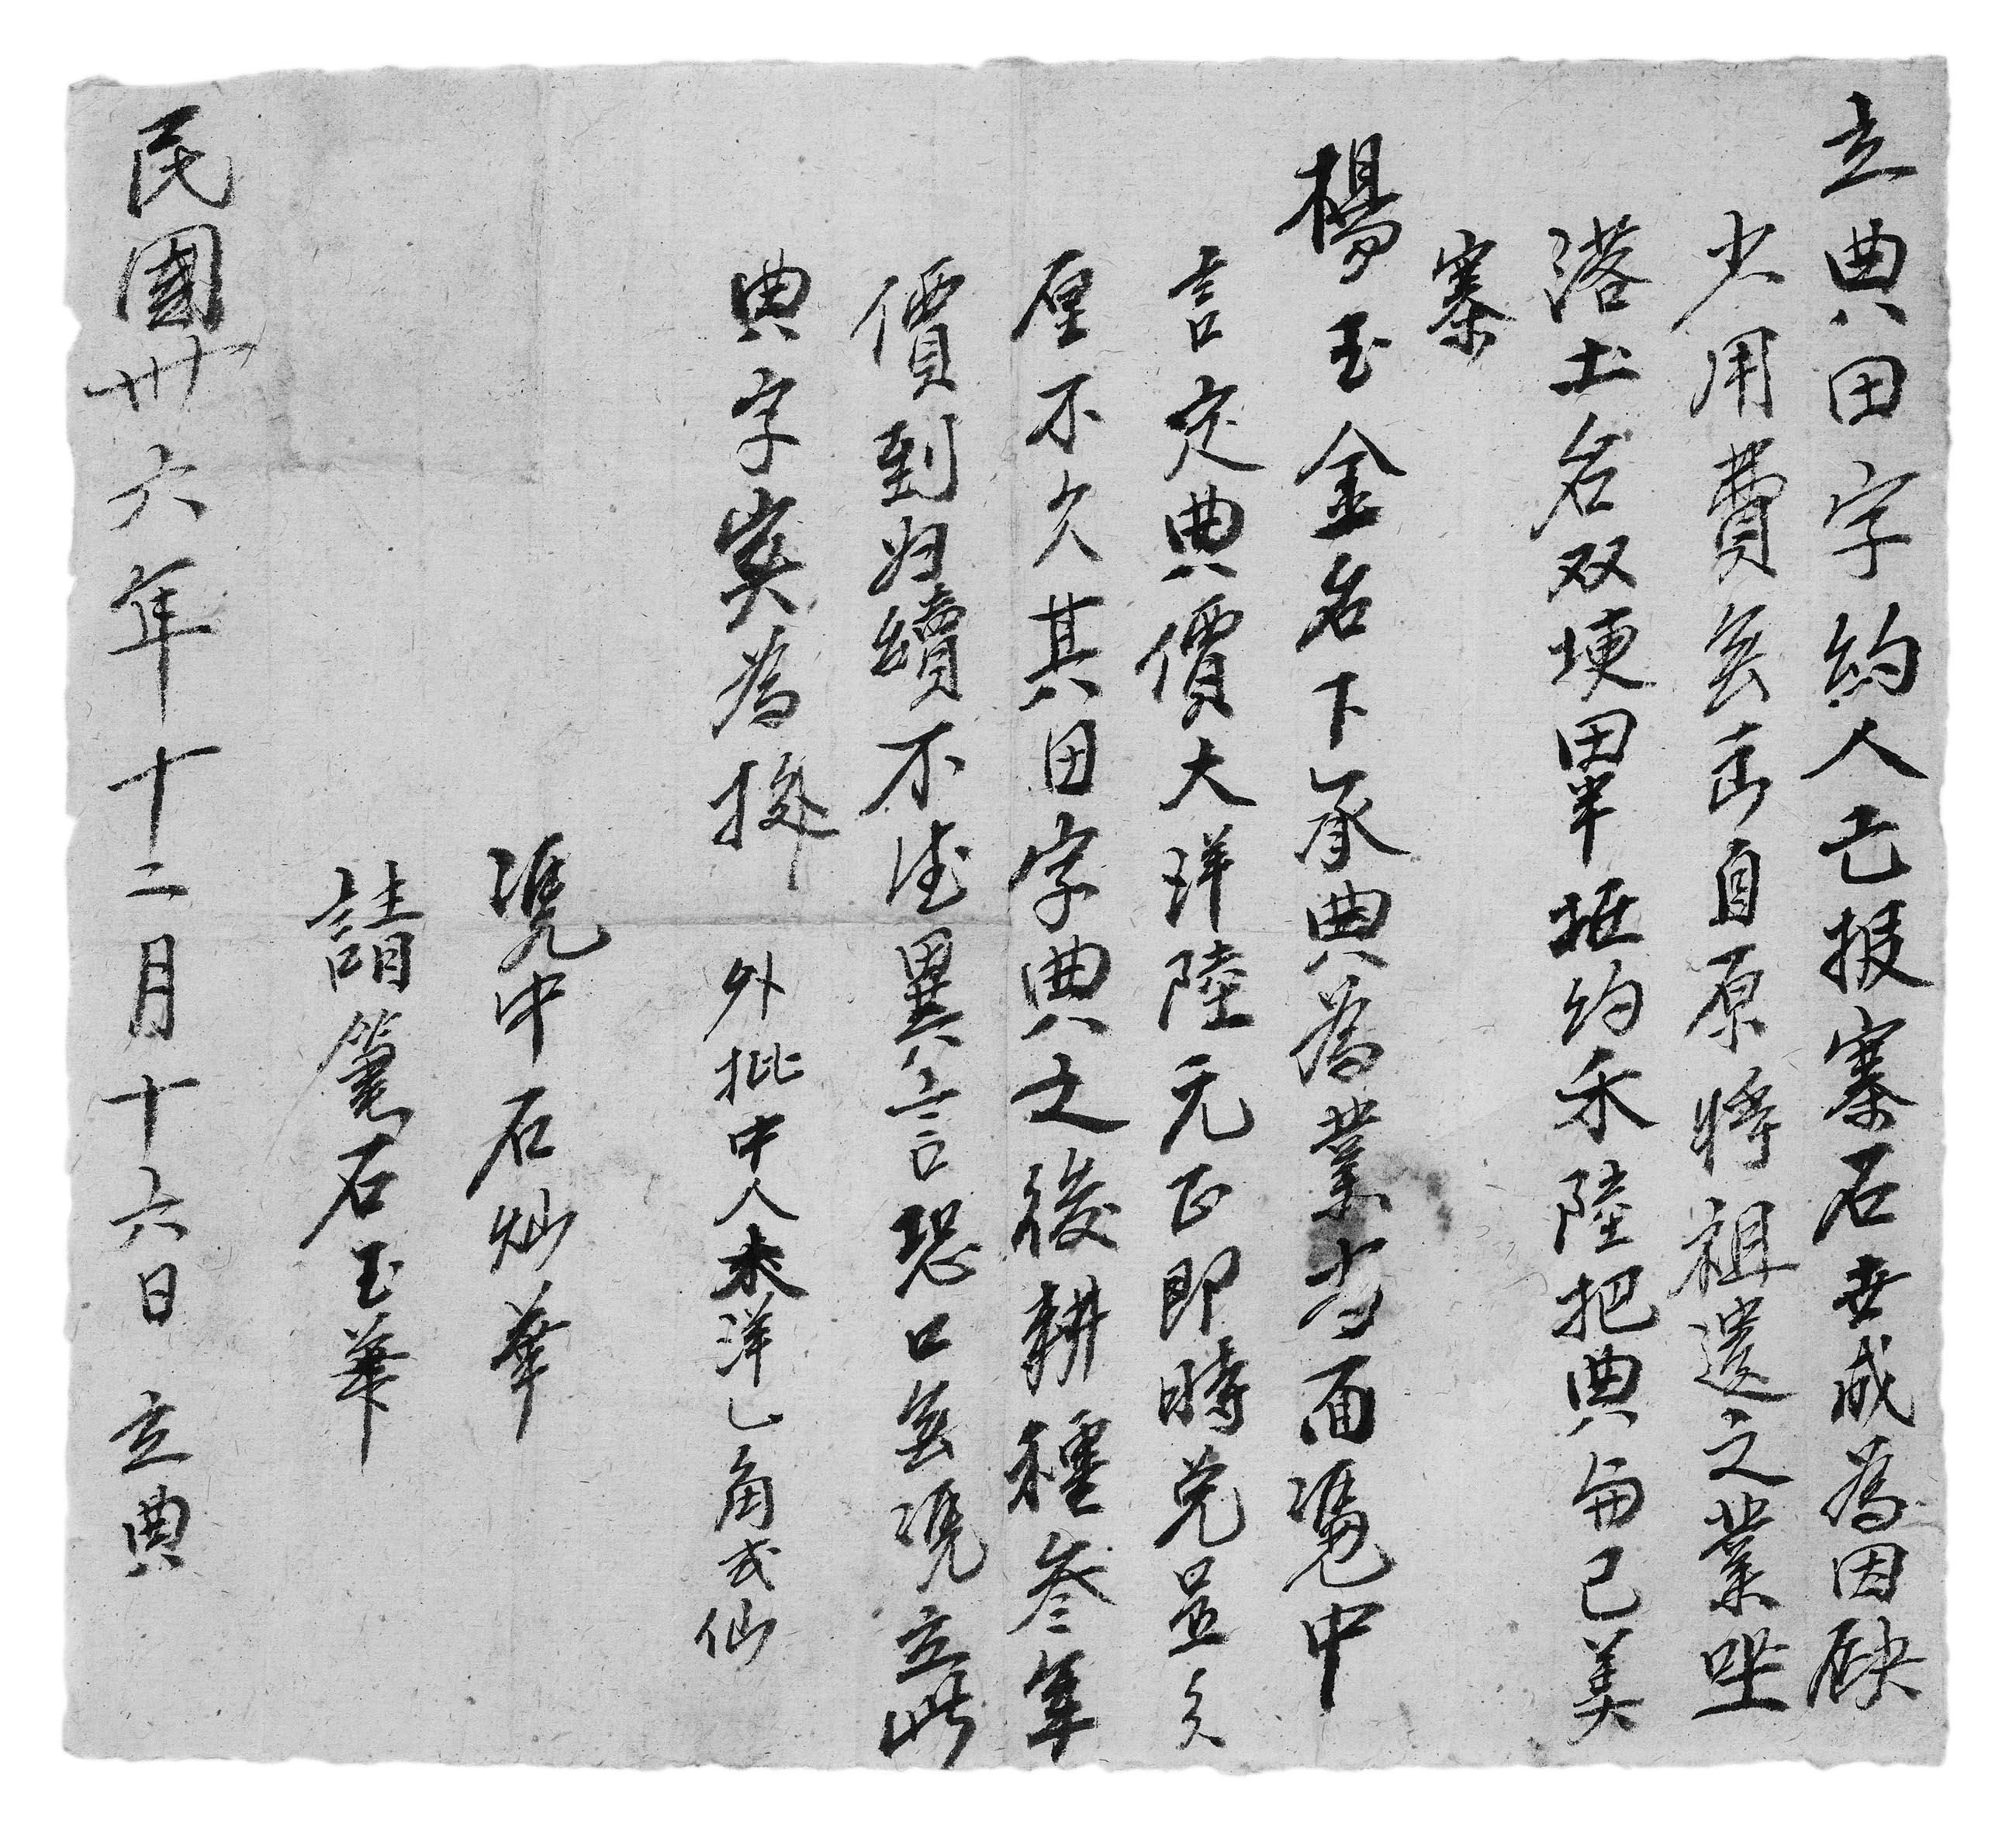 立典田字約人亡报寨石世成為因缺
少用費無去自原將祖遺之業坐
落土名双埂田半坵约禾陸把典與己美
寨
楊玉金名下承典為業当面憑中
言定典價大洋陸元正即時兑足分
厘不欠其田字典之後耕種叁年
價到归續不得異言恐口無凭立此
典字實為據 外批中人木洋乚角弍仙
凭中石灿華
請筆石玉華
民國卅六年十二月十六日 立典